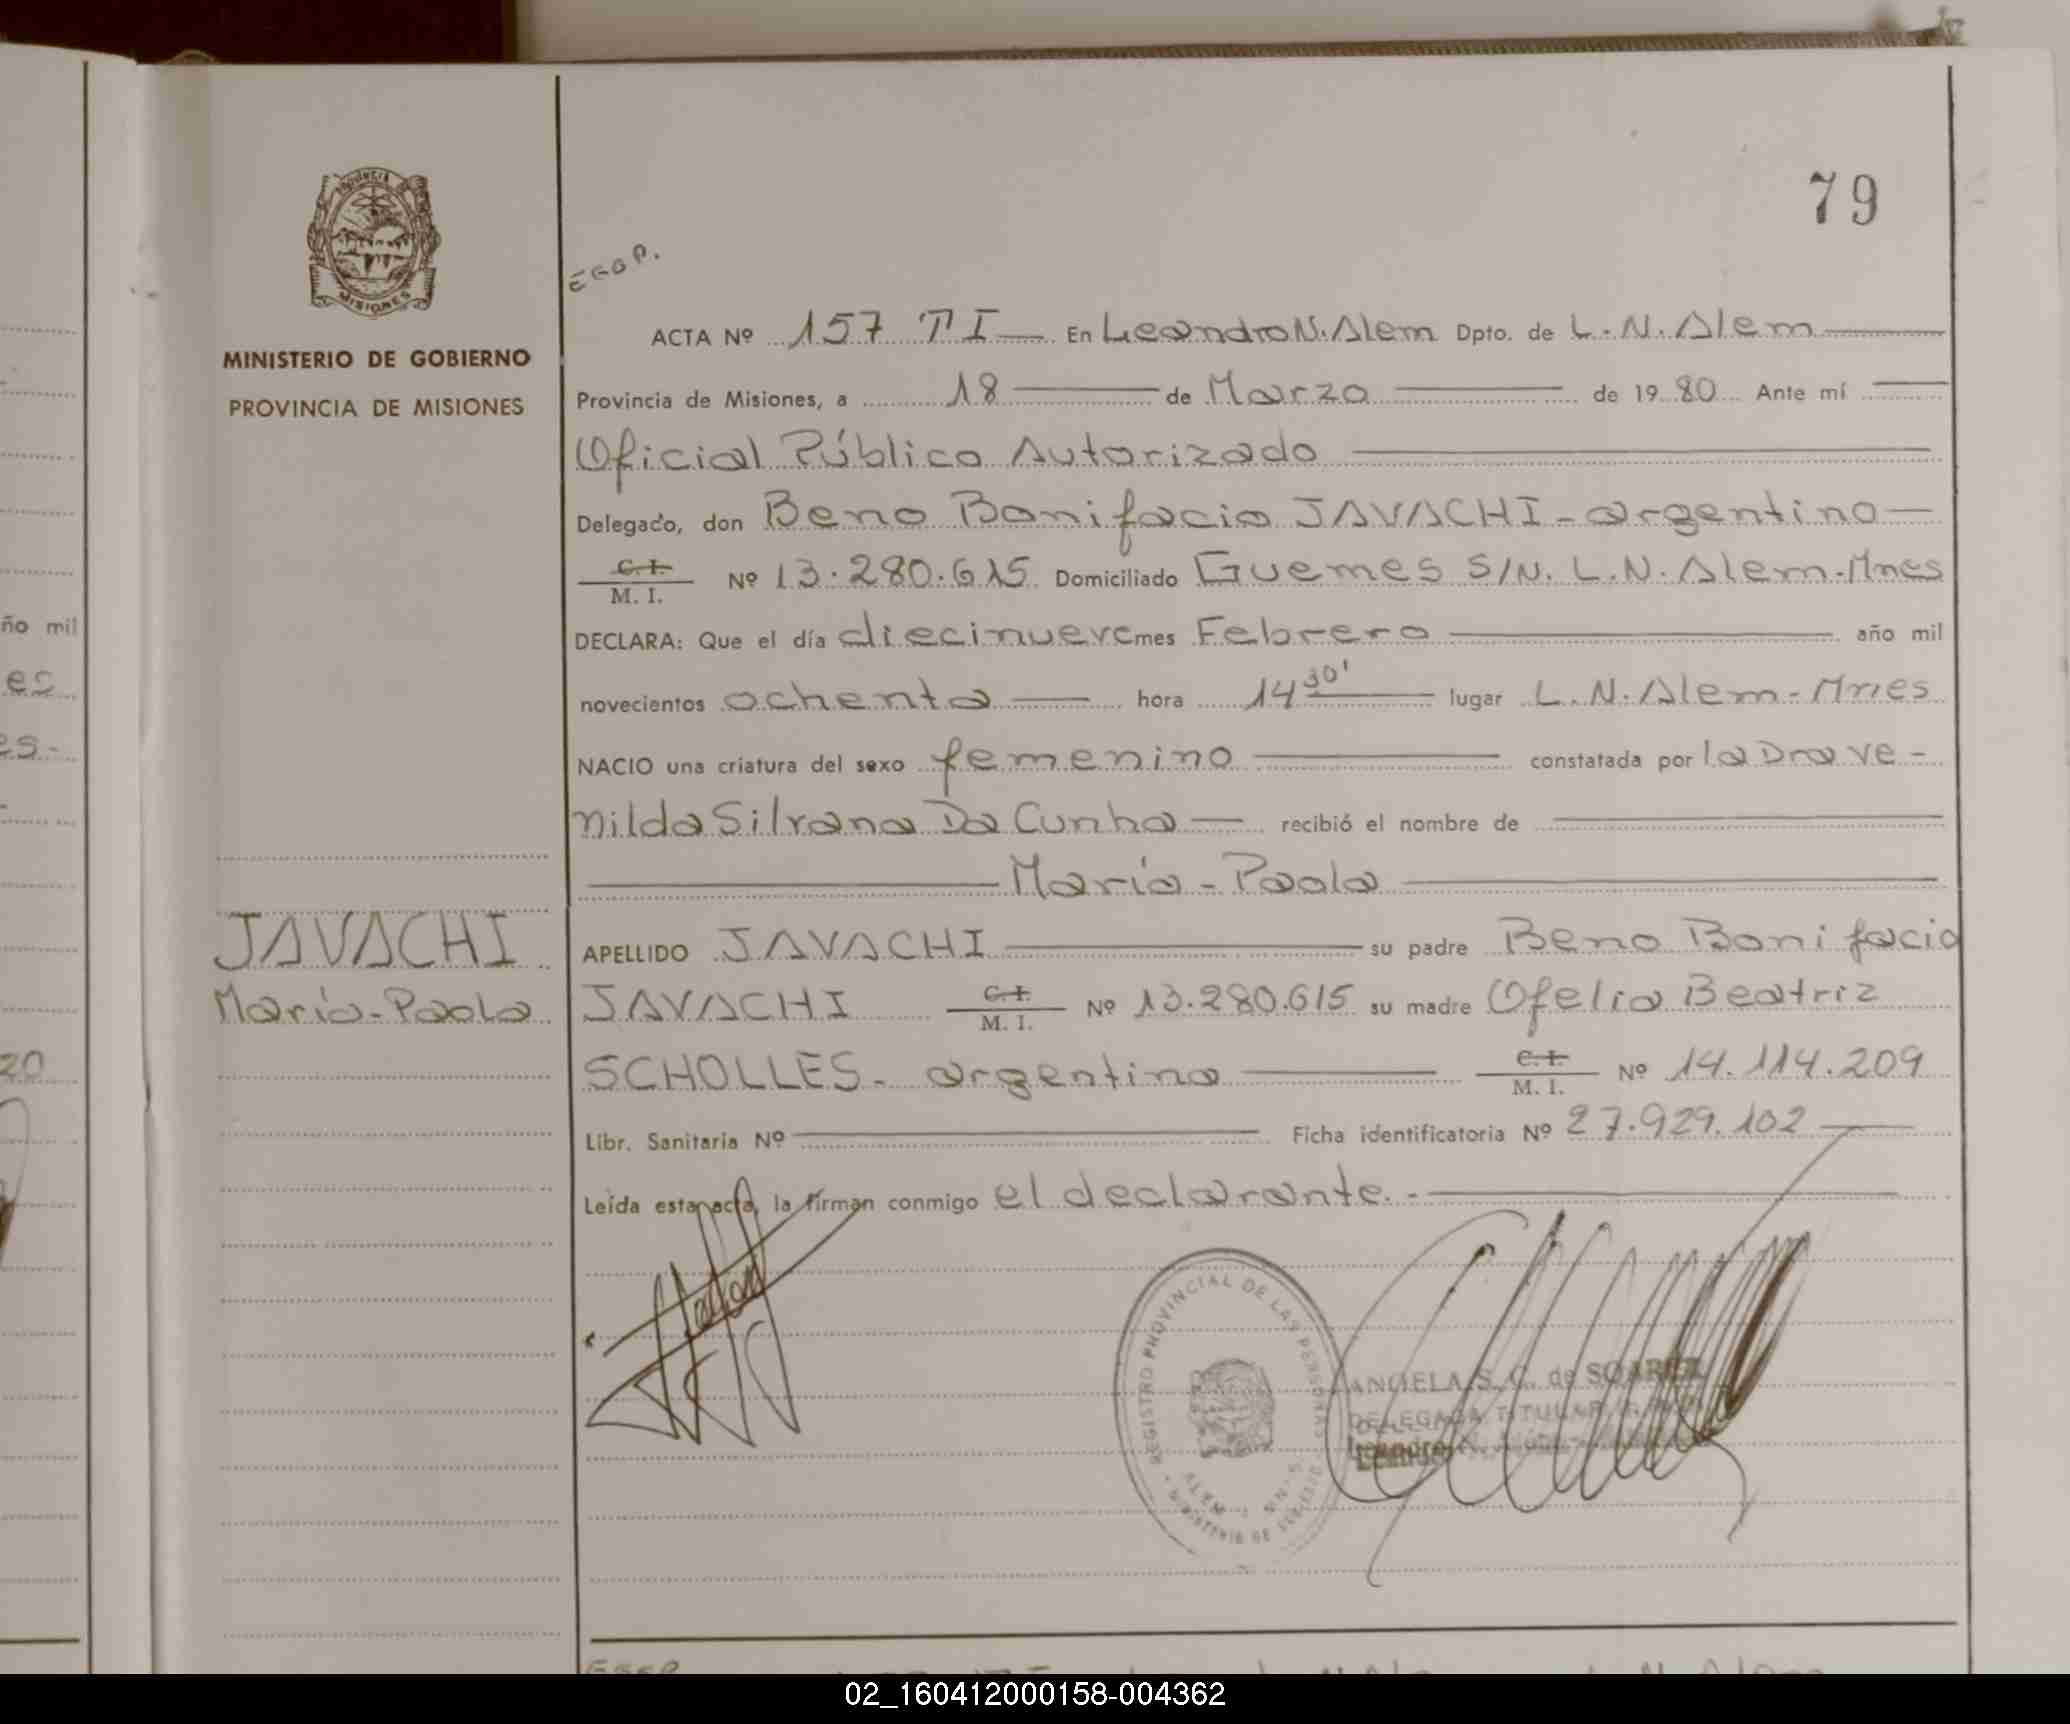 79
MINISTERIO DE GOBIERNO
PROVINCIA DE MISIONES
ACTA Nº 157 TI En Leandro N. Alem Dpto. de L. N. Alem
Provincia de Misiones, a 18 de Marzo de 1980 Ante mí
Oficial Público Autorizado
Delegado, don Beno Bonifacio JAVACHI - argentino
C. I. / M. I. Nº 13.280.615 Domiciliado Guemes S/N. L. N. Alem. Mnes
DECLARA: Que el día diecinueve mes Febrero año mil
novecientos ochenta hora 14 30' lugar L. N. Alem - Mnes
NACIO una criatura del sexo femenino constatada por la Dra Ve-
nilda Silvana Da Cunha recibió el nombre de
María - Paola
JAVACHI
María - Paola
APELLIDO JAVACHI su padre Beno Bonifacio
JAVACHI C. I. / M. I. Nº 13.280.615 su madre Ofelia Beatriz
SCHOLLES - argentina C. I. / M. I. Nº 14.114.209
Libr. Sanitaria Nº Ficha identificatoria Nº 27.929.102
Leída esta acta, la firman conmigo el declarante. -
REGISTRO PROVINCIAL DE LAS PERSONAS
MINISTERIO DE GOBIERNO
ALEM
ANGELA S. C. de
DELEGADA TITULAR
ño mil
es
es-
20
02_160412000158-004362